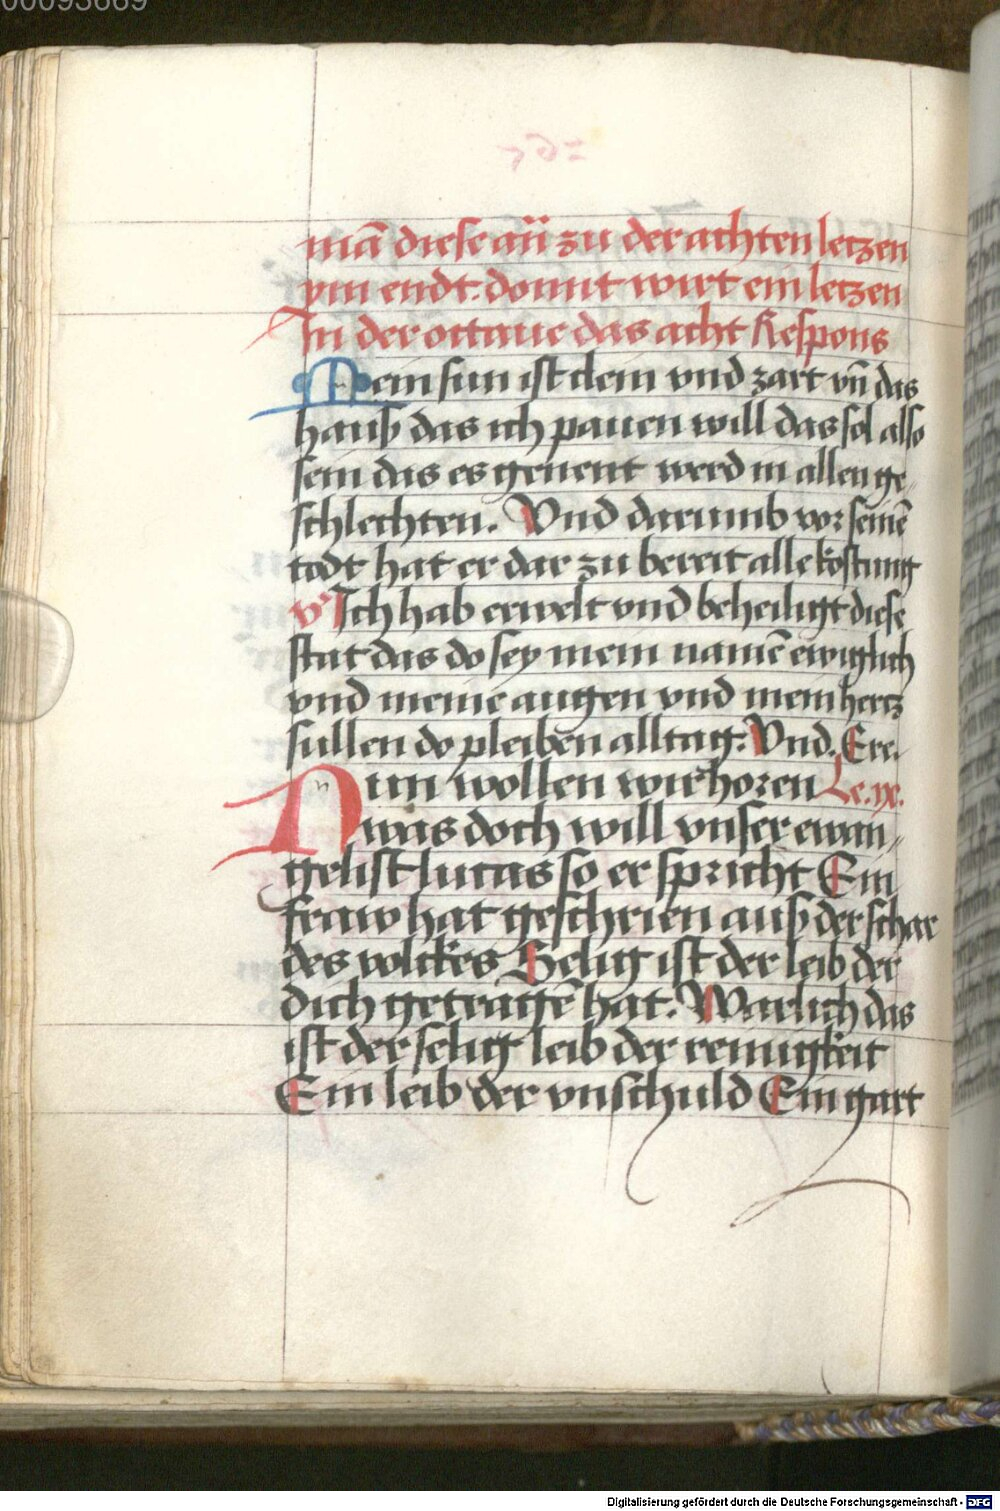 00093669
mā diese aū zu der achten letzen
ym endt. domit wirt ein letzen
In der octaue das acht Respons
Mein sun ist clein vnd zart vn̄ das
hauß das ich pauen will das sol also
sein das es genent werd in allen ge„
schlechten. Vnd darumb vor seinē
todt hat er dar zu bereit alle kostung
v Ich hab erwelt vnd beheiligt diese
stat das do sey mein namē ewiglich
vnd meine augen vnd mein hertz
sullen do pleiben alltag. Vnd. Ere.
Nun wollen wir horen Le. ix.
was doch will vnser ewan„
gelist lucas so er spricht Ein
fraw hat geschrien auß der schar
des volckes Selig ist der leib der
dich getragē hat. Warlich das
ist der selig leib der reinigkeit
Ein leib der vnschuld Ein gart
Digitalisierung gefördert durch die Deutsche Forschungsgemeinschaft - DFG